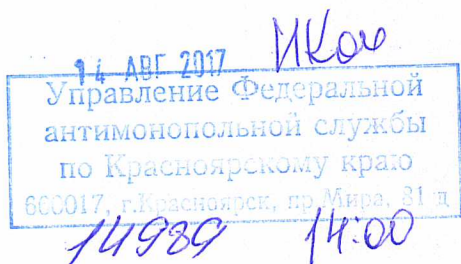 14 АВГ 2017
Управление Федеральной
антимонопольной службы
по Красноярскому краю
660017, г.Красноярск, пр.Мира, 81 д
14989 14:00